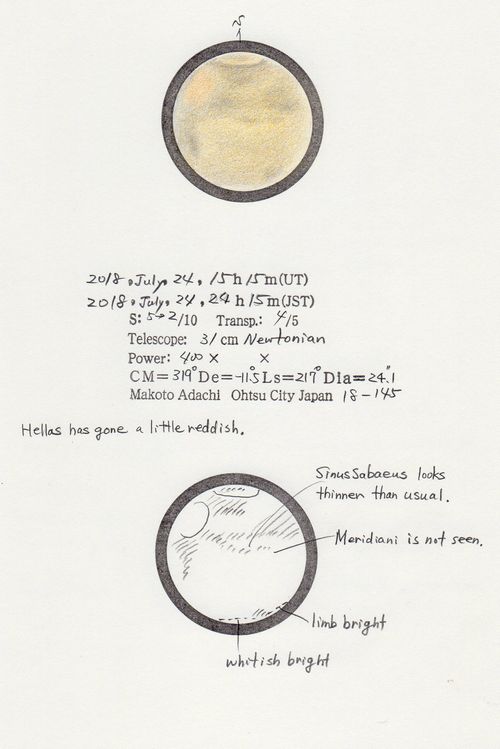 S
2018, July, 24, 15h 15m(UT)
2018, July, 24, 24h 15m(JST)
S: 5→2/10 Transp.: 4/5
Telescope: 31cm Newtonian
Power: 400× ×
CM=319° De=-11.°5 Ls=217° Dia=24."1
Makoto Adachi Ohtsu City Japan 18-145
Hellas has gone a little reddish.
Sinus Sabaeus looks
thinner than usual.
Meridiani is not seen.
limb bright
whitish bright